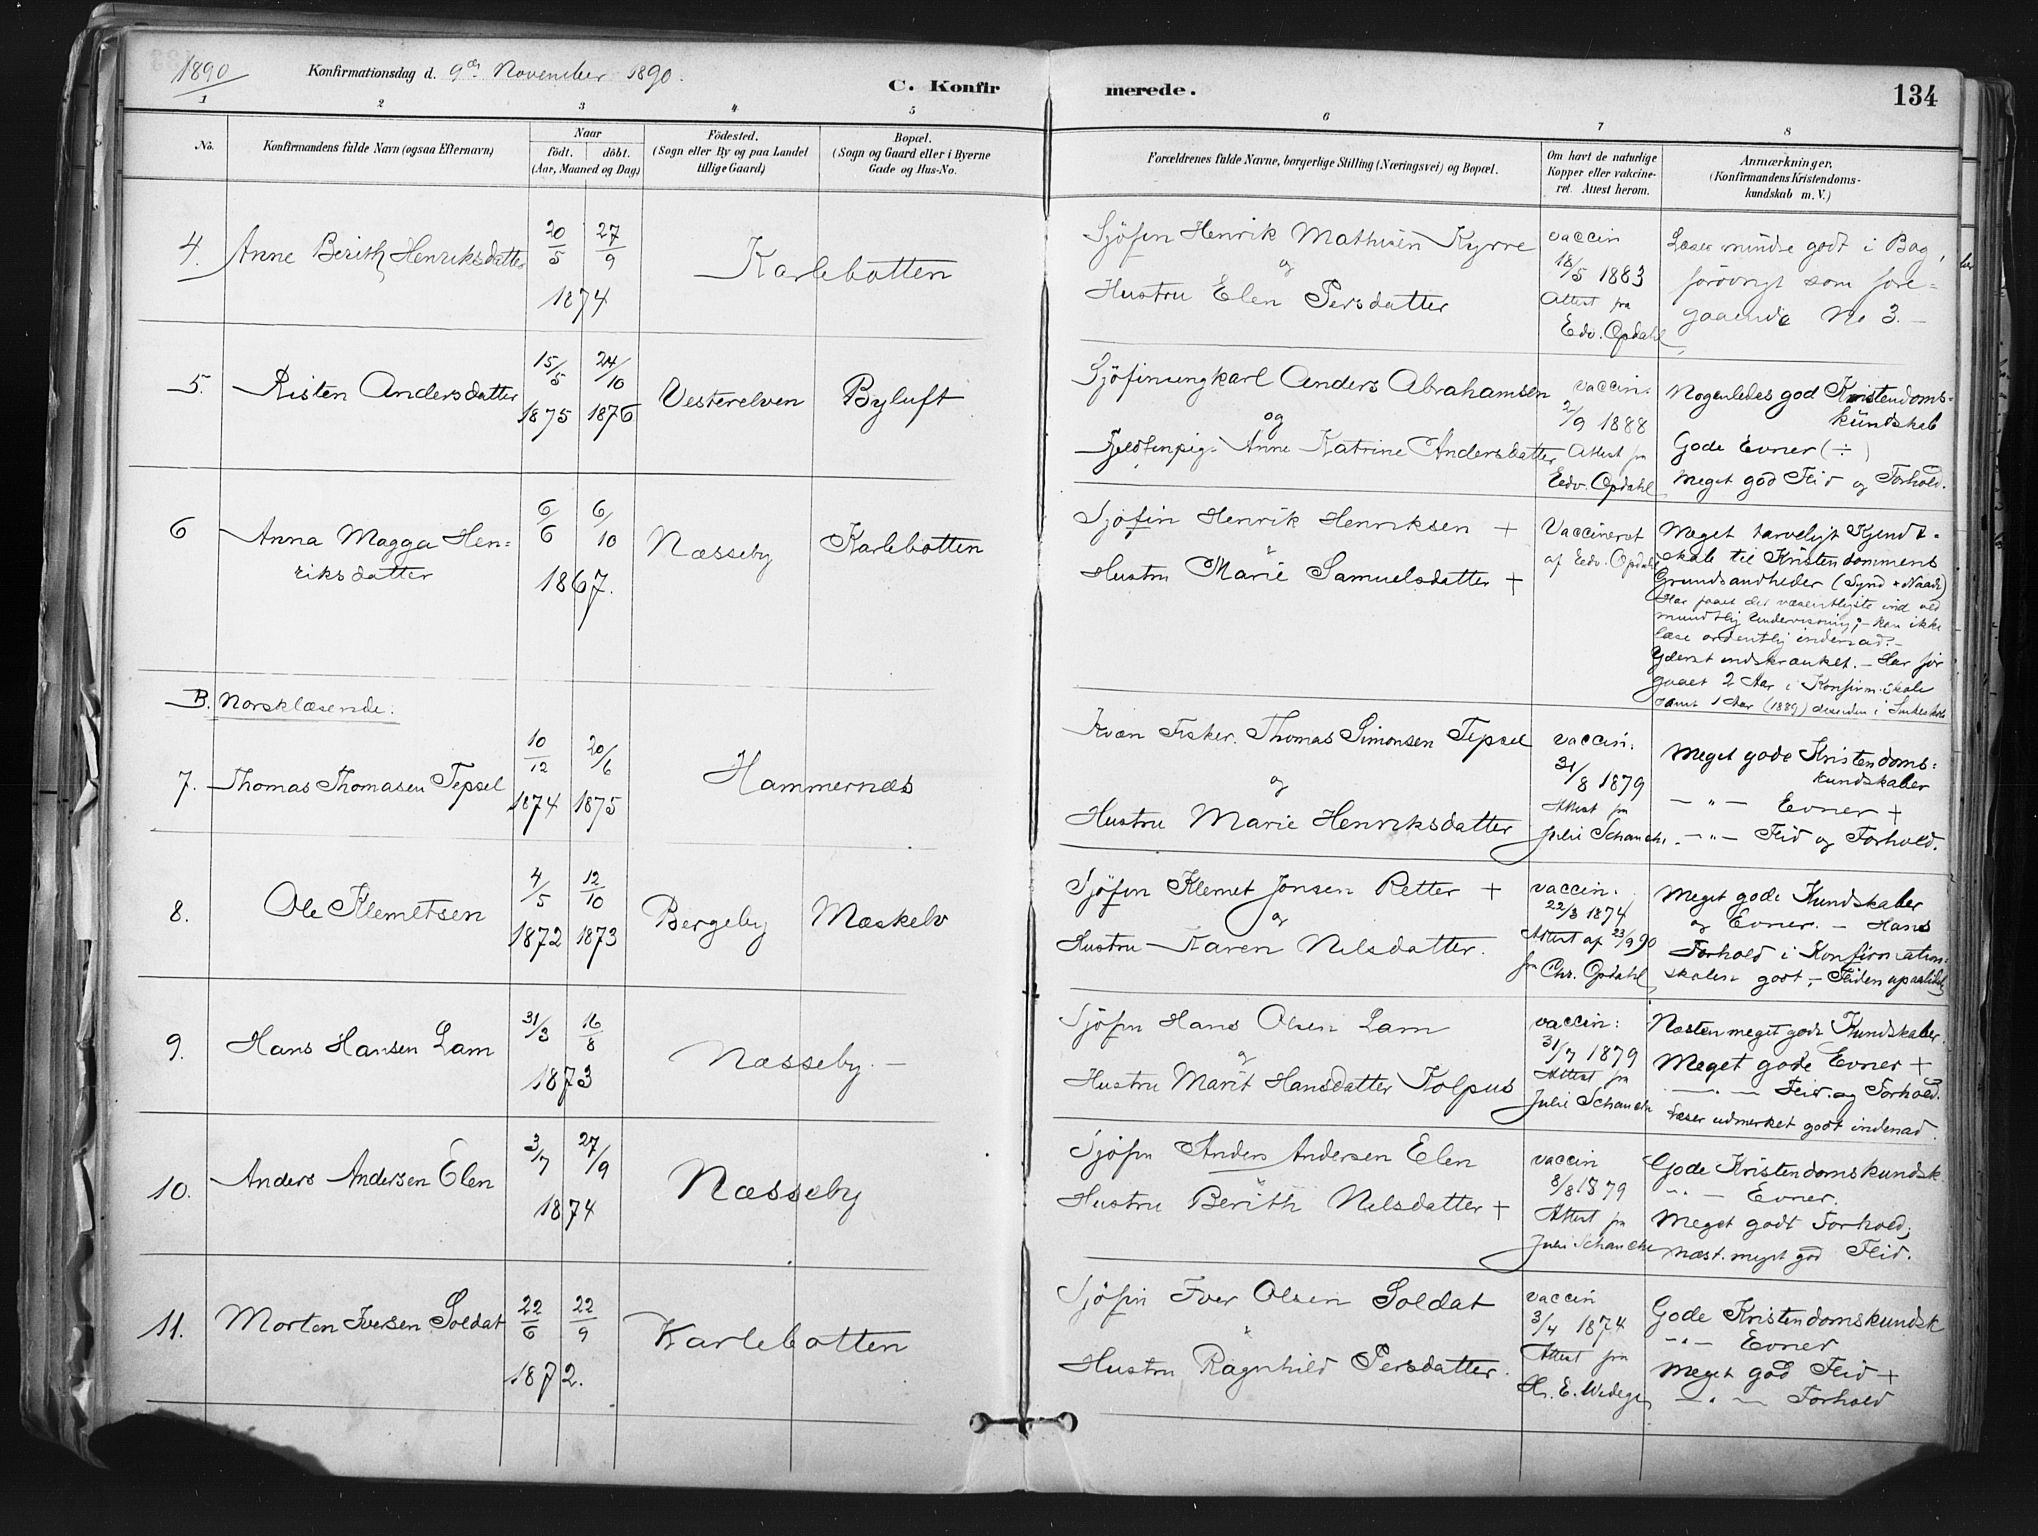 1890
Konfirmationsdag d. 9de November 1890.
C. Konfirmerede.
134
1 2 3 4 5 6 7 8
No.
Konfirmandens fulde Navn (ogsaa Efternavn)
Naar
födt. döbt.
(Aar, Maaned og Dag)
Födested.
(Sogn eller By og paa Landet
tillige Gaard)
Bopæl.
(Sogn og Gaard eller i Byerne
Gade og Hus-No.
Forældrenes fulde Navne, borgerlige Stilling (Næringsvei) og Bopæl.
Om havt de naturlige
Kopper eller vakcine-
ret. Attest herom.
Anmærkninger.
(Konfirmandens Kristendoms-
kundskab m. V.)
4. Anne Berith Henriksdatter
20/5 27/9
1874
Karlebotten
Sjöfin Henrik Mathisen Kyrre
og
Hustru Elen Persdatter
vaccin
18/5 1883
Attest fra
Edv. Opdahl
Læser mindre godt i Bog,
forövrigt som fore-
gaaende No 3.-
5. Risten Andersdatter
15/5 24/10
1875 1876
Vesterelven
Byluft
Sjöfinungkarl Anders Abrahamsen
og
Fjeldfinpig. Anne Katrine Andersdatter
vaccin.
2/9 1888
Attest fra
Edv. Opdahl
Nogenledes god Kristendoms-
kundskab
Gode Evner (÷)
Meget god Flid og Forhold.
6 Anna Magga Hen=
riksdatter
6/6 6/10
1867.
Næsseby
Karlebotten
Sjöfin Henrik Henriksen +
&
Hustru Marie Samuelsdatter +
Vaccineret
af Edv. Opdahl
Meget tarveligt Kjendt-
skab til Kristendommens
Grundsandheder (Synd + Naade)
Har faaet det væsentligste ind ved
mundtlig Undervisning; - kan ikke
læse ordentlig indenad. -
Yderst indskrænket. - Har för
gaaet 2 Aar i Konfirm. skole
samt 1 Aar (1889) desuden i
B. Norsklæsende:
7. Thomas Thomasen Tepsel
10/12 20/6
1874 1875
Hammernæs
Kvæn Fisker. Thomas Simonsen Tepsel
og
Hustru Marie Henriksdatter
vaccin.
31/8 1879
Attest fra
Julie Schanche.
Meget gode Kristendoms=
kundskaber
— " — Evner +
— " — Flid og Forhold.
8. Ole Klemetsen
4/5 12/10
1872 1873
Bergeby
Mæskelv
Sjöfin Klemet Jonsen Retter +
og
Hustru Karen Nilsdatter.
vaccin.
22/3 1874
Attest af 23/9 90
fra Chr. Opdahl
Meget gode Kundskaber
og Evner. - Hans
Forhold i Konfirmation=
skolen godt, - Fliden upaalidelig
9. Hans Hansen Lam
31/3 16/8
1873
Næsseby. -
Sjöfin Hans Olsen Lam
&
Hustru Marit Hansdatter Kolpus
vaccin:
31/7 1879
Attest fra
Julie Schanche
Næsten meget gode Kundskaber.
Meget gode Evner +
— " — Flid. og Forhold.
Læser udmerket godt indenad.
10. Anders Andersen Elen
3/7 27/9
1874
Næsseby
Sjöfin Anders Andersen Elen
&
Hustru Berith Nilsdatter +
vaccin
8/8 1879
Attest fra
Julie Schanche
Gode Kristendomskundsk.
" — Evner.
Meget godt Forhold;
næst. meget god Flid.
11. Morten Iversen Soldat
22/6 22/9
1872.
Karlebotten
Sjöfin Iver Olsen Soldat
&
Hustru Ragnhild Persdatter.
vaccin
3/4 1874
Attest fra
E. Wedege
Gode Kristendomskundsk
" — Evner
Meget god Flid +
— " — Forhold